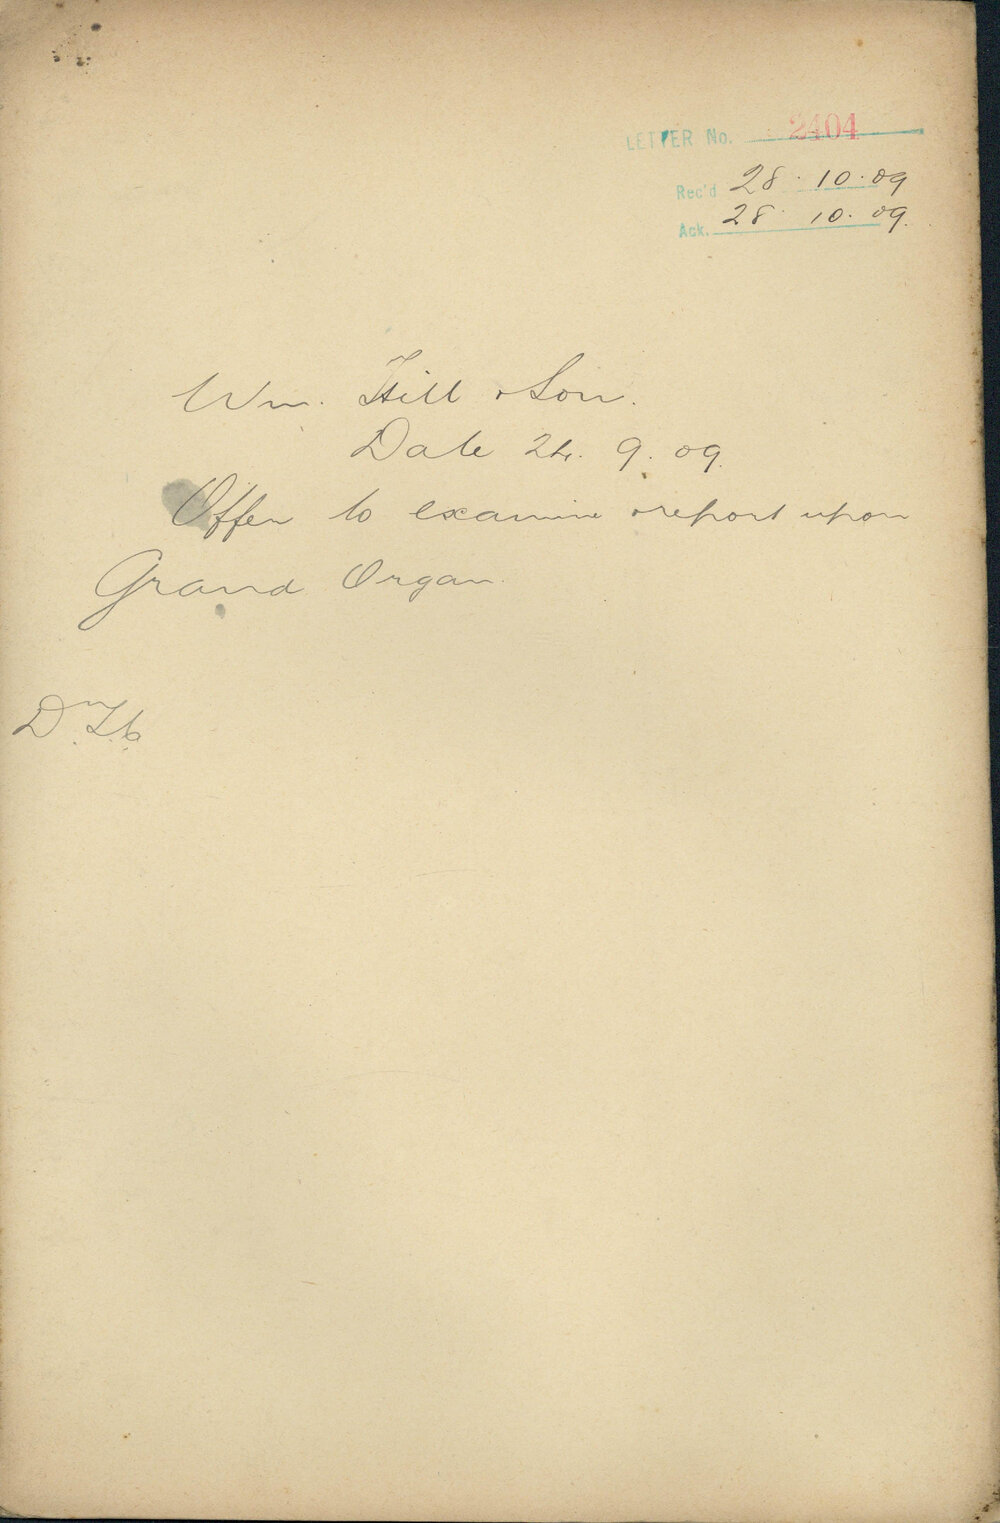 LETTER No. 2404
Rec'd 28.10.09
Ack. 28.10.09.
Wm. Hill & Son.
Date 24.9.09.
Offer to examine & report upon
Grand Organ.